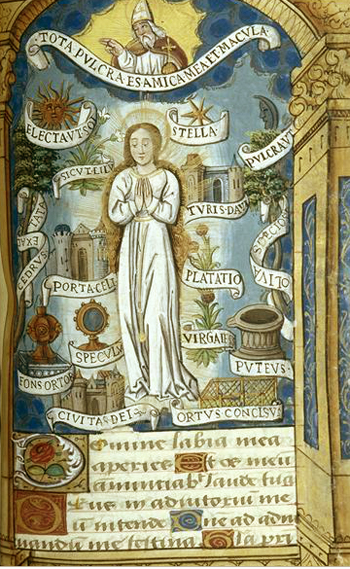 TOTA PVLCRA ES AMICA MEA ET MACVLA
ELECTA VT SOL
STELLA
PVLCRA VT
SICVT LILI
TVRIS DA
CEDRVS EXALTATA
OLIVA SPECIOS
PORTA CELI
PLATATIO
SPECVLV
VIRGA IE
FONS ORTO
PVTEVS
CIVITAS DEI
ORTVS CONCLVSV
Domine labia mea
aperies Et os meū
annuntiabit laude tuā
Deus in adiutoriū me
ū intende Dne ad adiu
uandū me festina Gla pri